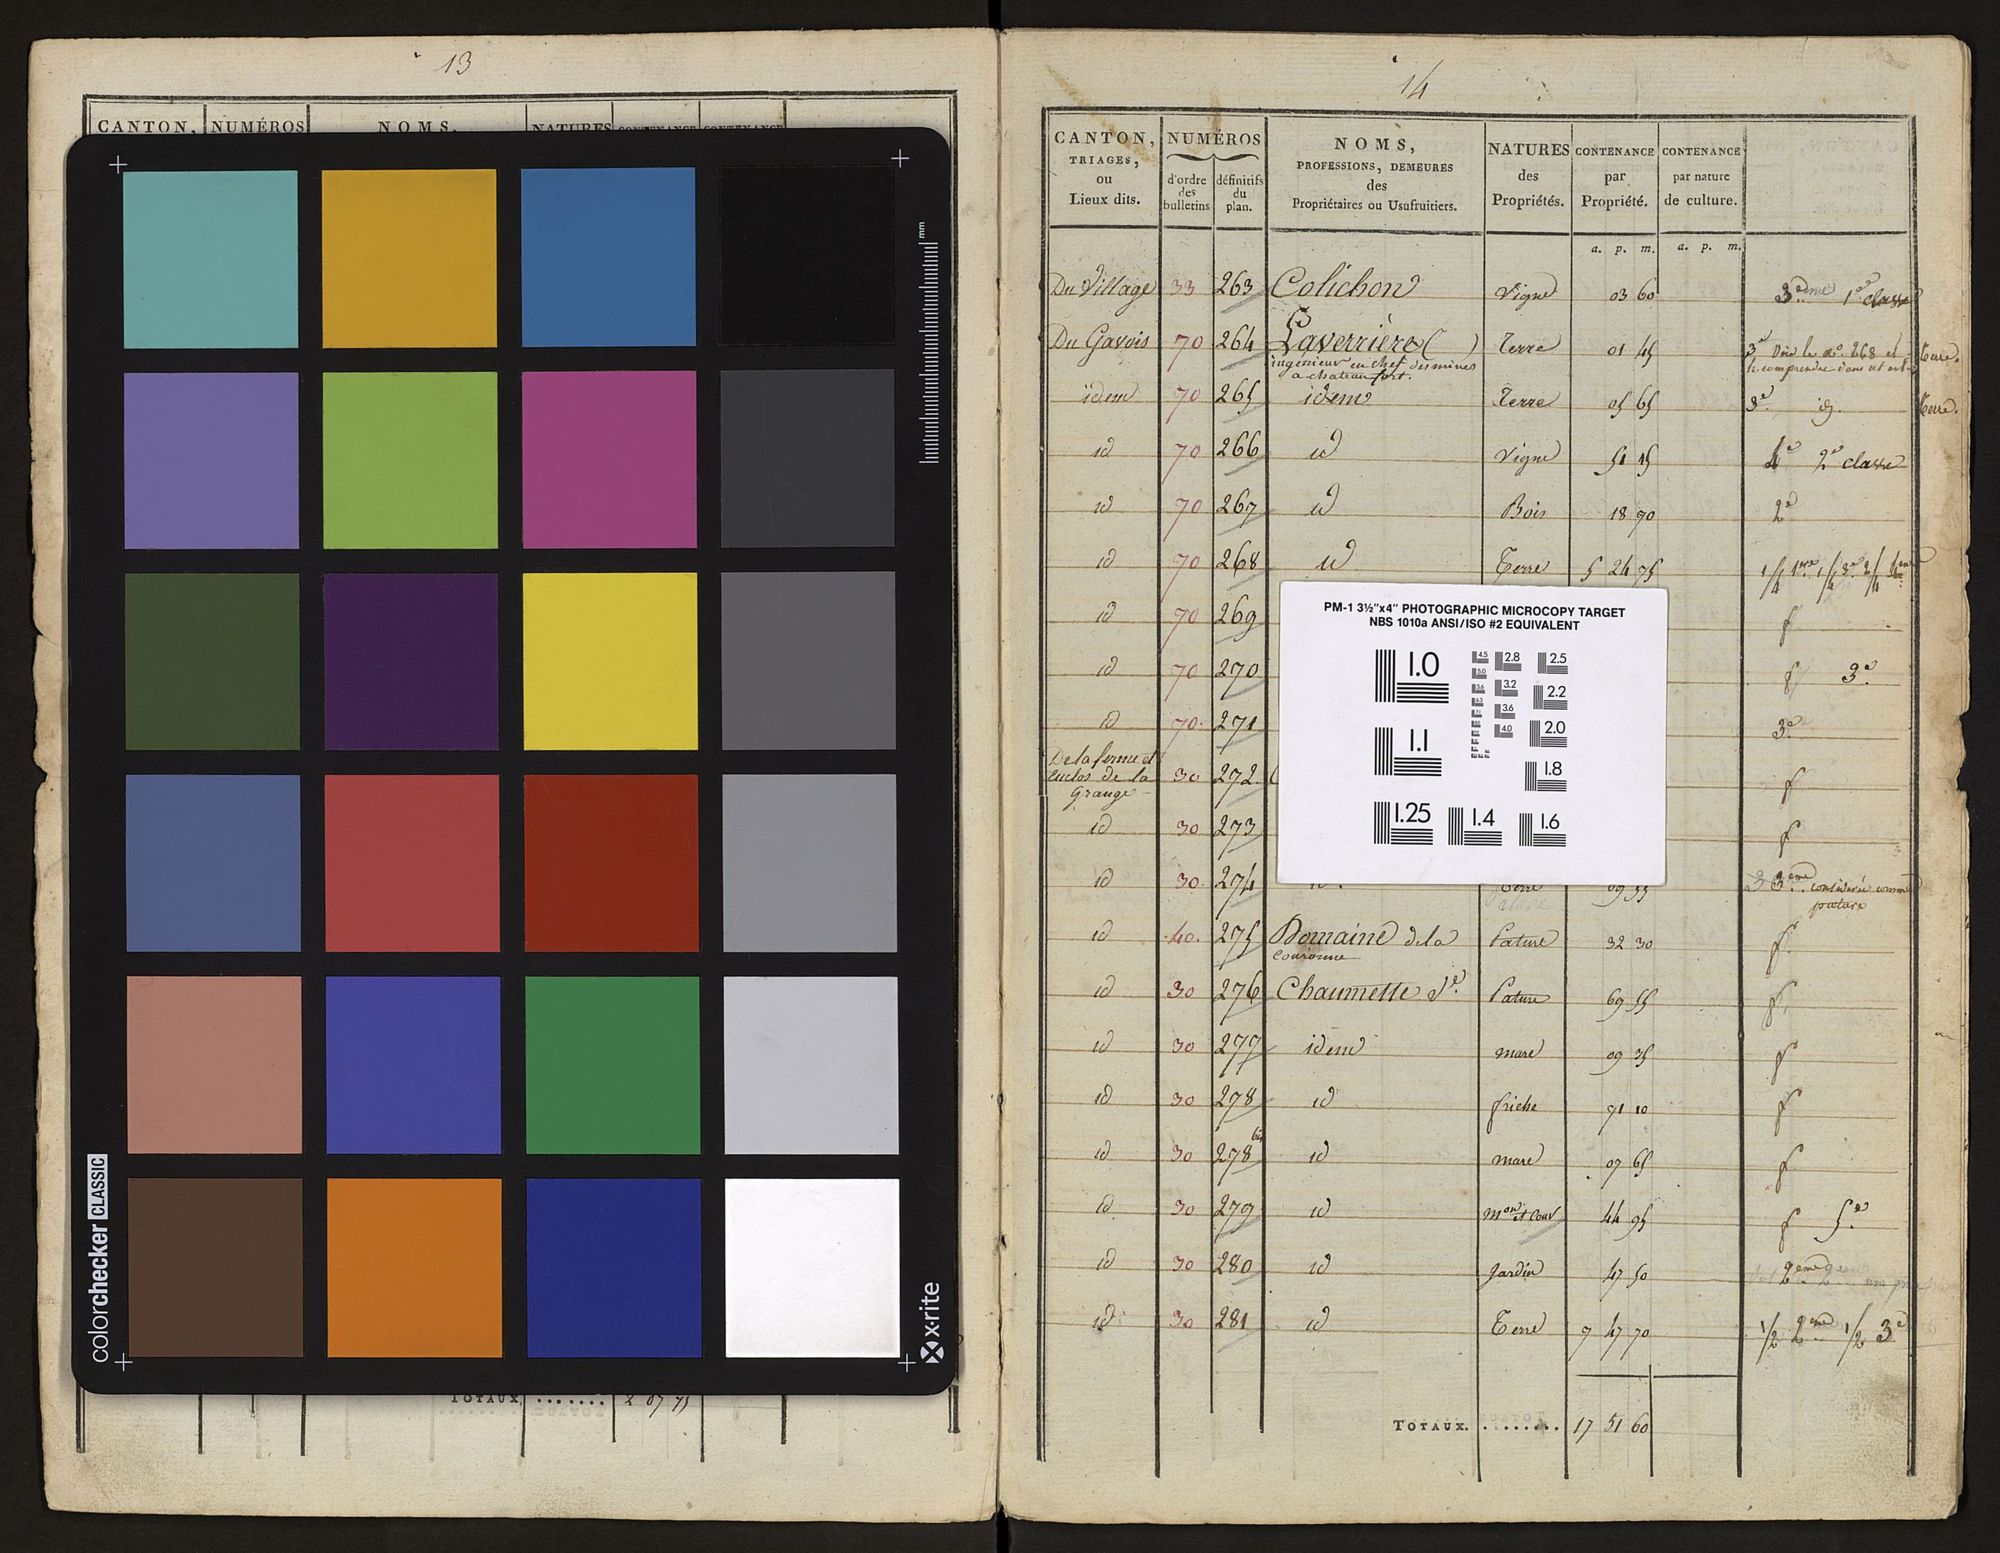 13
CANTON, NUMÉROS NOMS, NATURES CONTENANCE CONTENANCE
mm
colorchecker CLASSIC
x·rite
TOTAUX ....... 2 07 75
14
CANTON, NUMÉROS NOMS, NATURES CONTENANCE CONTENANCE
TRIAGES, PROFESSIONS, DEMEURES
ou d'ordre définitifs des des par par nature
Lieux dits. des du Propriétaires ou Usufruitiers. Propriétés. Propriété. de culture.
bulletins plan.
a. p. m. a. p. m.
Du Village 33 263 Colichon Vigne 03 60 3eme 1ere classe
Du Gavois 70 264 Laverrière ( ) Terre 01 45 3e Voir le no. 268 et Terre.
ingénieur en chef des mines le comprendre dans cet art.
a chateau fort.
idem 70 265 idem Terre 05 65 3e id. Terre.
id 70 266 id Vigne 51 15 4e 2e classe
id 70 267 id Bois 18 90 2e
id 70 268 id Terre 5 24 75 1/4 1ere 1/4 3e 2/4 4eme
id 70 269 f
id 70 270 f 3e
id 70. 271 3e
De la ferme et
Enclos de la 30 272 f
Grange
id 30 273 f
id 30. 274 id. Terre 09 55 3 3eme considérée comme
pature
id 40. 275 Domaine de la Pature 32 30 f.
Couronne
id 30 276 Chaumette Je. Pature 69 55 f
id 30 277 idem mare 09 35 f
id 30 278 id friche 91 10 f
id 30 278 bis id mare 07 65 f
id 30 279 id mon et Cour 44 95 f 5e
id 30 280 id Jardin 47 50 2eme
id 30 281 id Terre 7 47 70 1/2 2eme 1/2 3e
TOTAUX. ........ 17 51 60
PM-1 3½"x4" PHOTOGRAPHIC MICROCOPY TARGET
NBS 1010a ANSI/ISO #2 EQUIVALENT
1.0 4.5 2.8 2.5
5.0
5.6 3.2 2.2
3.6
1.1 4.0 2.0
1.8
1.25 1.4 1.6